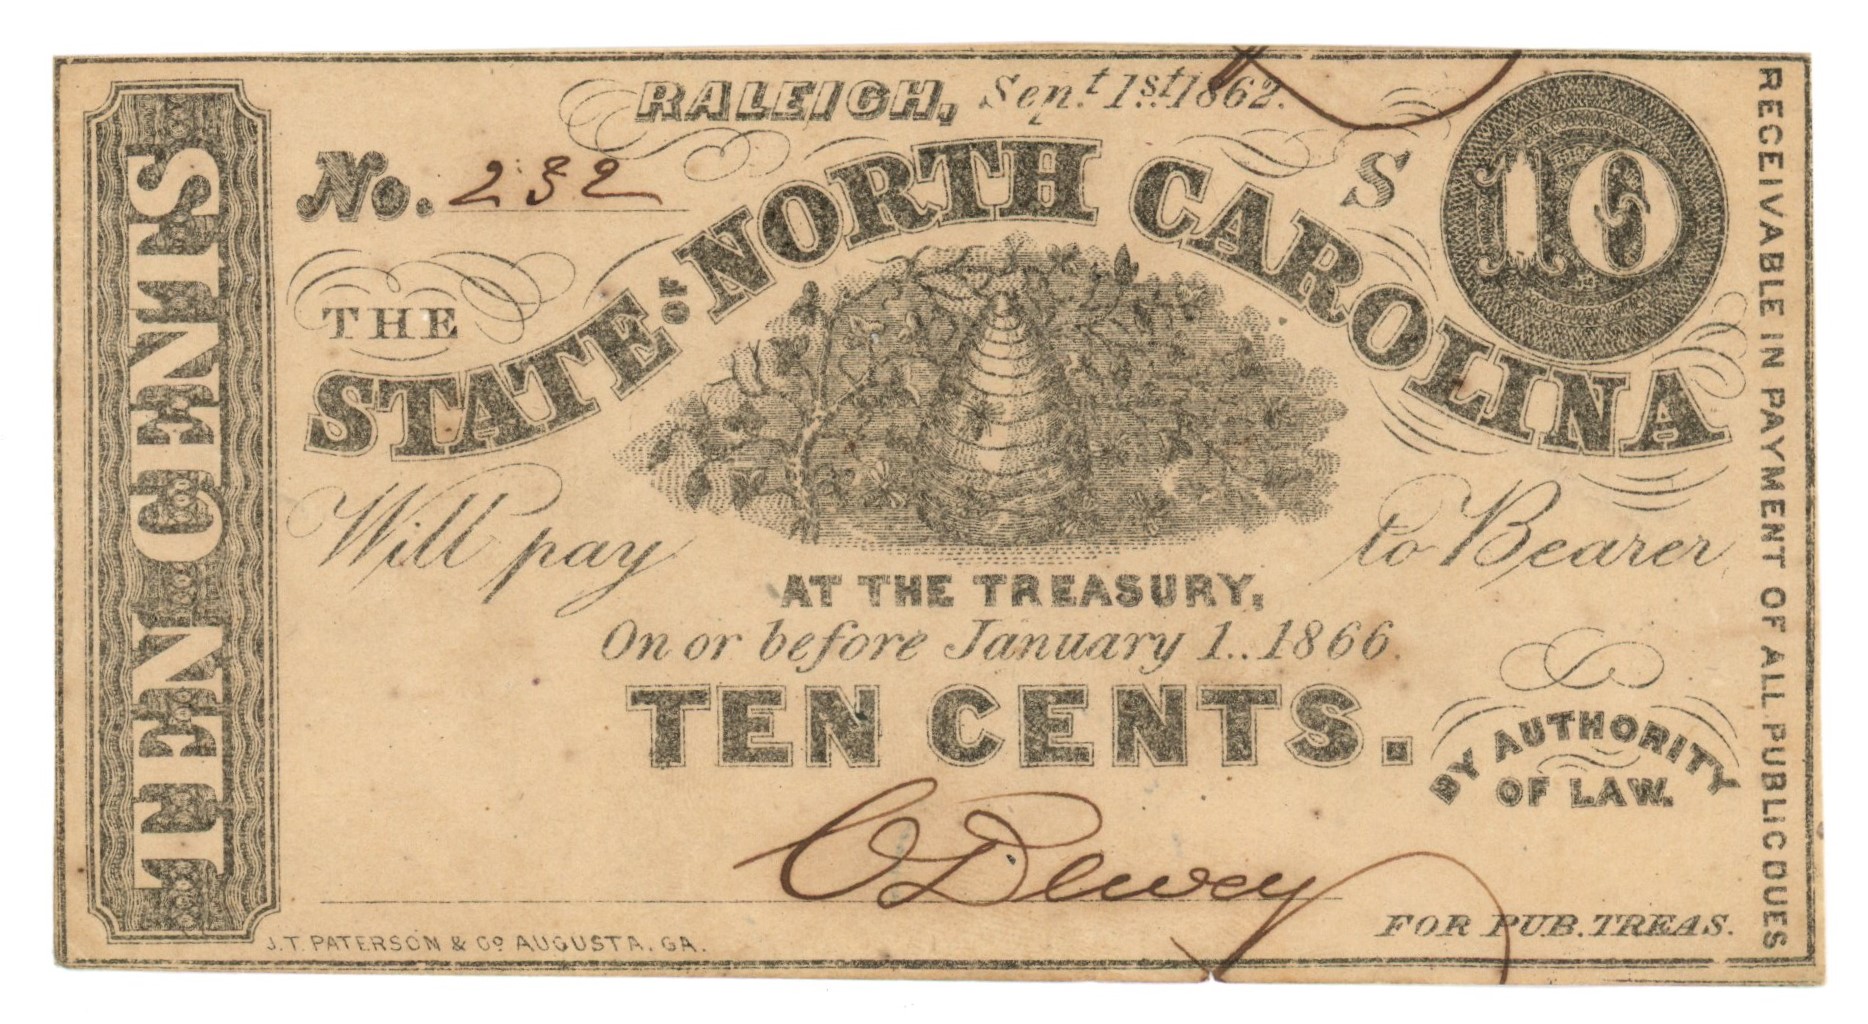 RALEIGH, Sept. 1st. 1862.
No. 232
S
10
THE
STATE OF NORTH CAROLINA
Will pay to Bearer
AT THE TREASURY,
On or before January 1..1866.
TEN CENTS.
BY AUTHORITY
OF LAW.
C Dewey
FOR PUB. TREAS.
J.T. PATERSON & Co AUGUSTA. GA.
TEN CENTS
RECEIVABLE IN PAYMENT OF ALL PUBLIC DUES